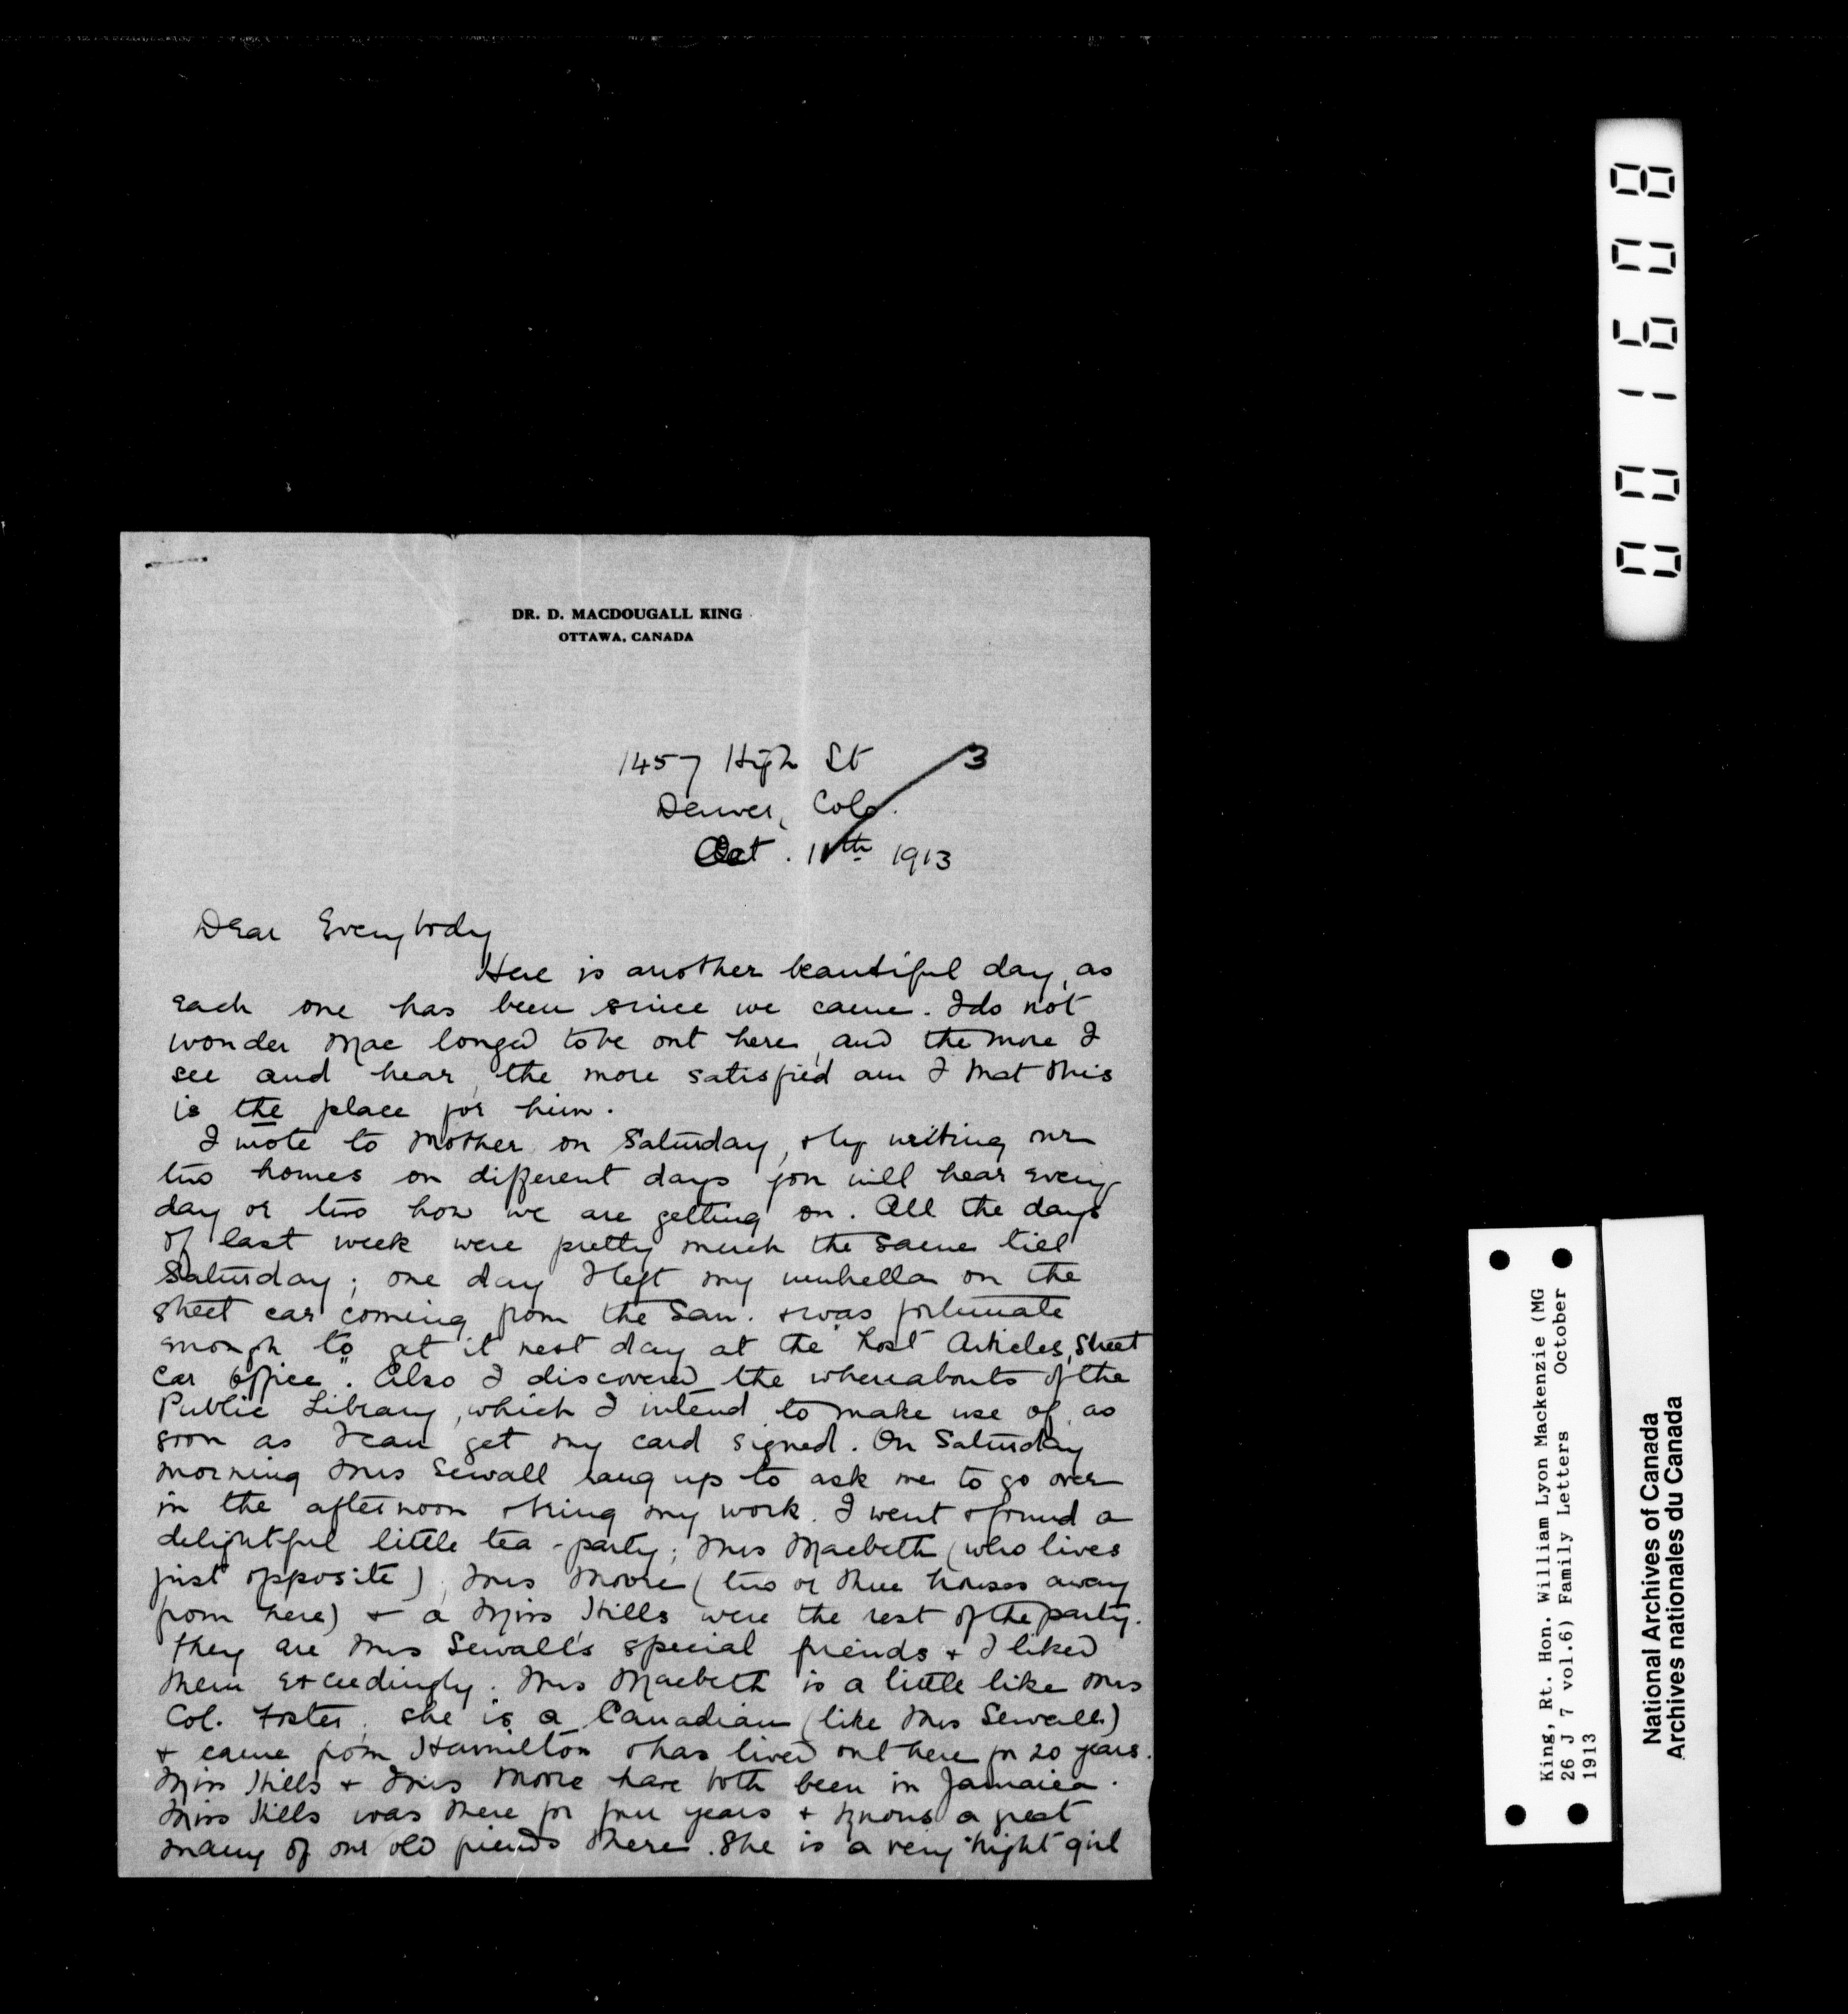 DR. D. MACDOUGALL KING
OTTAWA, CANADA
1457 High St
Denver, Colo.
Oct. 11th 1913
3
Dear Everybody
Here is another beautiful day, as
each one has been since we came. I do not
wonder Mac longed to be out here, and the more I
see and hear, the more satisfied am I that this
is the place for him.
I wrote to Mother on Saturday, & by writing our
two homes on different days you will hear every
day or two how we are getting on. All the days
of last week were pretty much the same till
Saturday; one day I left my umbrella on the
street car coming from the San. & was fortunate
enough to get it next day at the "Lost Articles, Street
Car Office". Also I discovered the whereabouts of the
Public Library, which I intend to make use of, as
soon as I can get my card signed. On Saturday
morning Mrs Sewall rang up to ask me to go over
in the afternoon & bring my work. I went & found a
delightful little tea-party; Mrs Macbeth (who lives
just opposite), Mrs Moore (two or three houses away
from here) & a Miss Hills were the rest of the party.
They are Mrs Sewall's special friends & I liked
them exceedingly. Mrs Macbeth is a little like Mrs
Col. Foster, she is a Canadian (like Mrs Sewall)
& came from Hamilton & has lived out here for 20 years.
Miss Hills & Mrs Moore have both been in Jamaica.
Miss Hills was there for four years & knows a great
many of our old friends there. She is a very bright girl
0001608
King, Rt. Hon. William Lyon Mackenzie (MG
26 J 7 vol.6) Family Letters October
1913
National Archives of Canada
Archives nationales du Canada